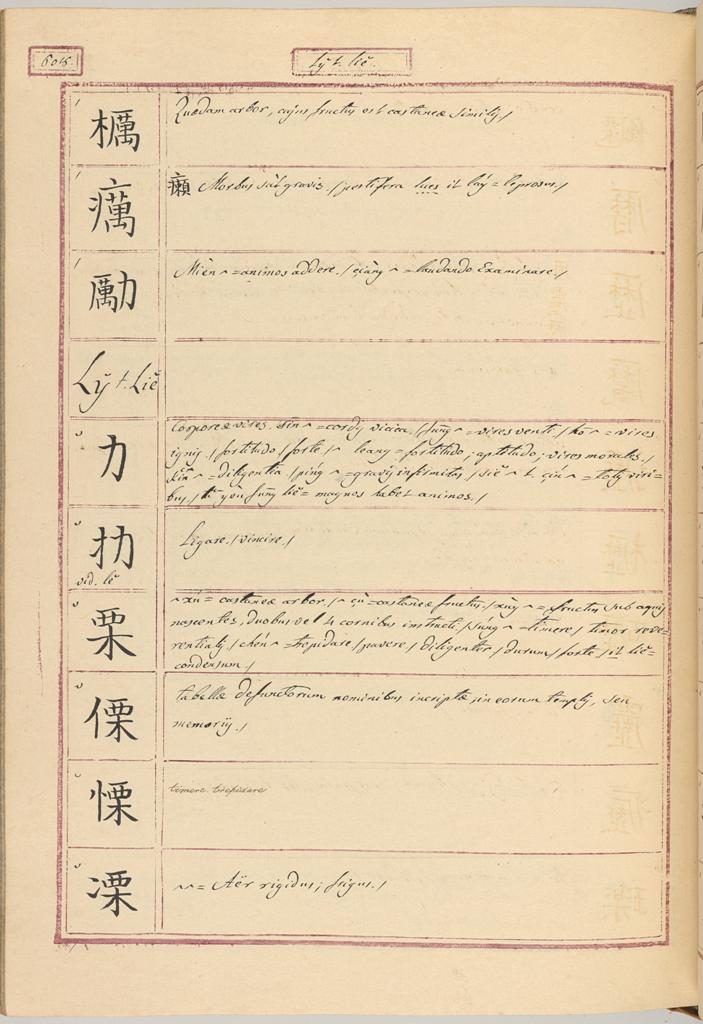 Lỹ t. liĕ.
櫔 Quædam arbor, cujus fructus est castaneæ similis./
癘 癩 Morbus sat gravis./ pestifera lues it láy = leprosus./
勵 Mièn ^ = animos addere./ ciàng ^ = laudando Examinare./
Lỹ t. Liĕ
力 Corporeæ vires. sin ^ = cordis vis / fung ^ = vires venti./ ho ^ = vires
ignis./ fortitudo / forte./ ^ leang = fortitudo; aptitudo; vires morales./
^ = diligentia./ píng ^ = gravis infirmitas / ^ t. çín ^ = totis viri-
bus./ yòu liĕ = magnos habet animos./
扐 Ligare./ vincire./
vid. lĕ
栗 ^ xú = castaneæ arbor./ ^ çù = castaneæ fructus./ ^ = fructus sub aquis
nascentes, duobus vel 4 cornibus instructi./ ^ = timere./ timor reve-
rentialis./ chén ^ = trepidare / pavere./ diligenter / durum / forte / it liĕ =
condensum./
傈 tabellæ defunctorum nominibus inscriptæ, in eorum templis, seu
memoriis./
慄 timere. trepidare
凓 ^^ = Aër rigidus; frigus./